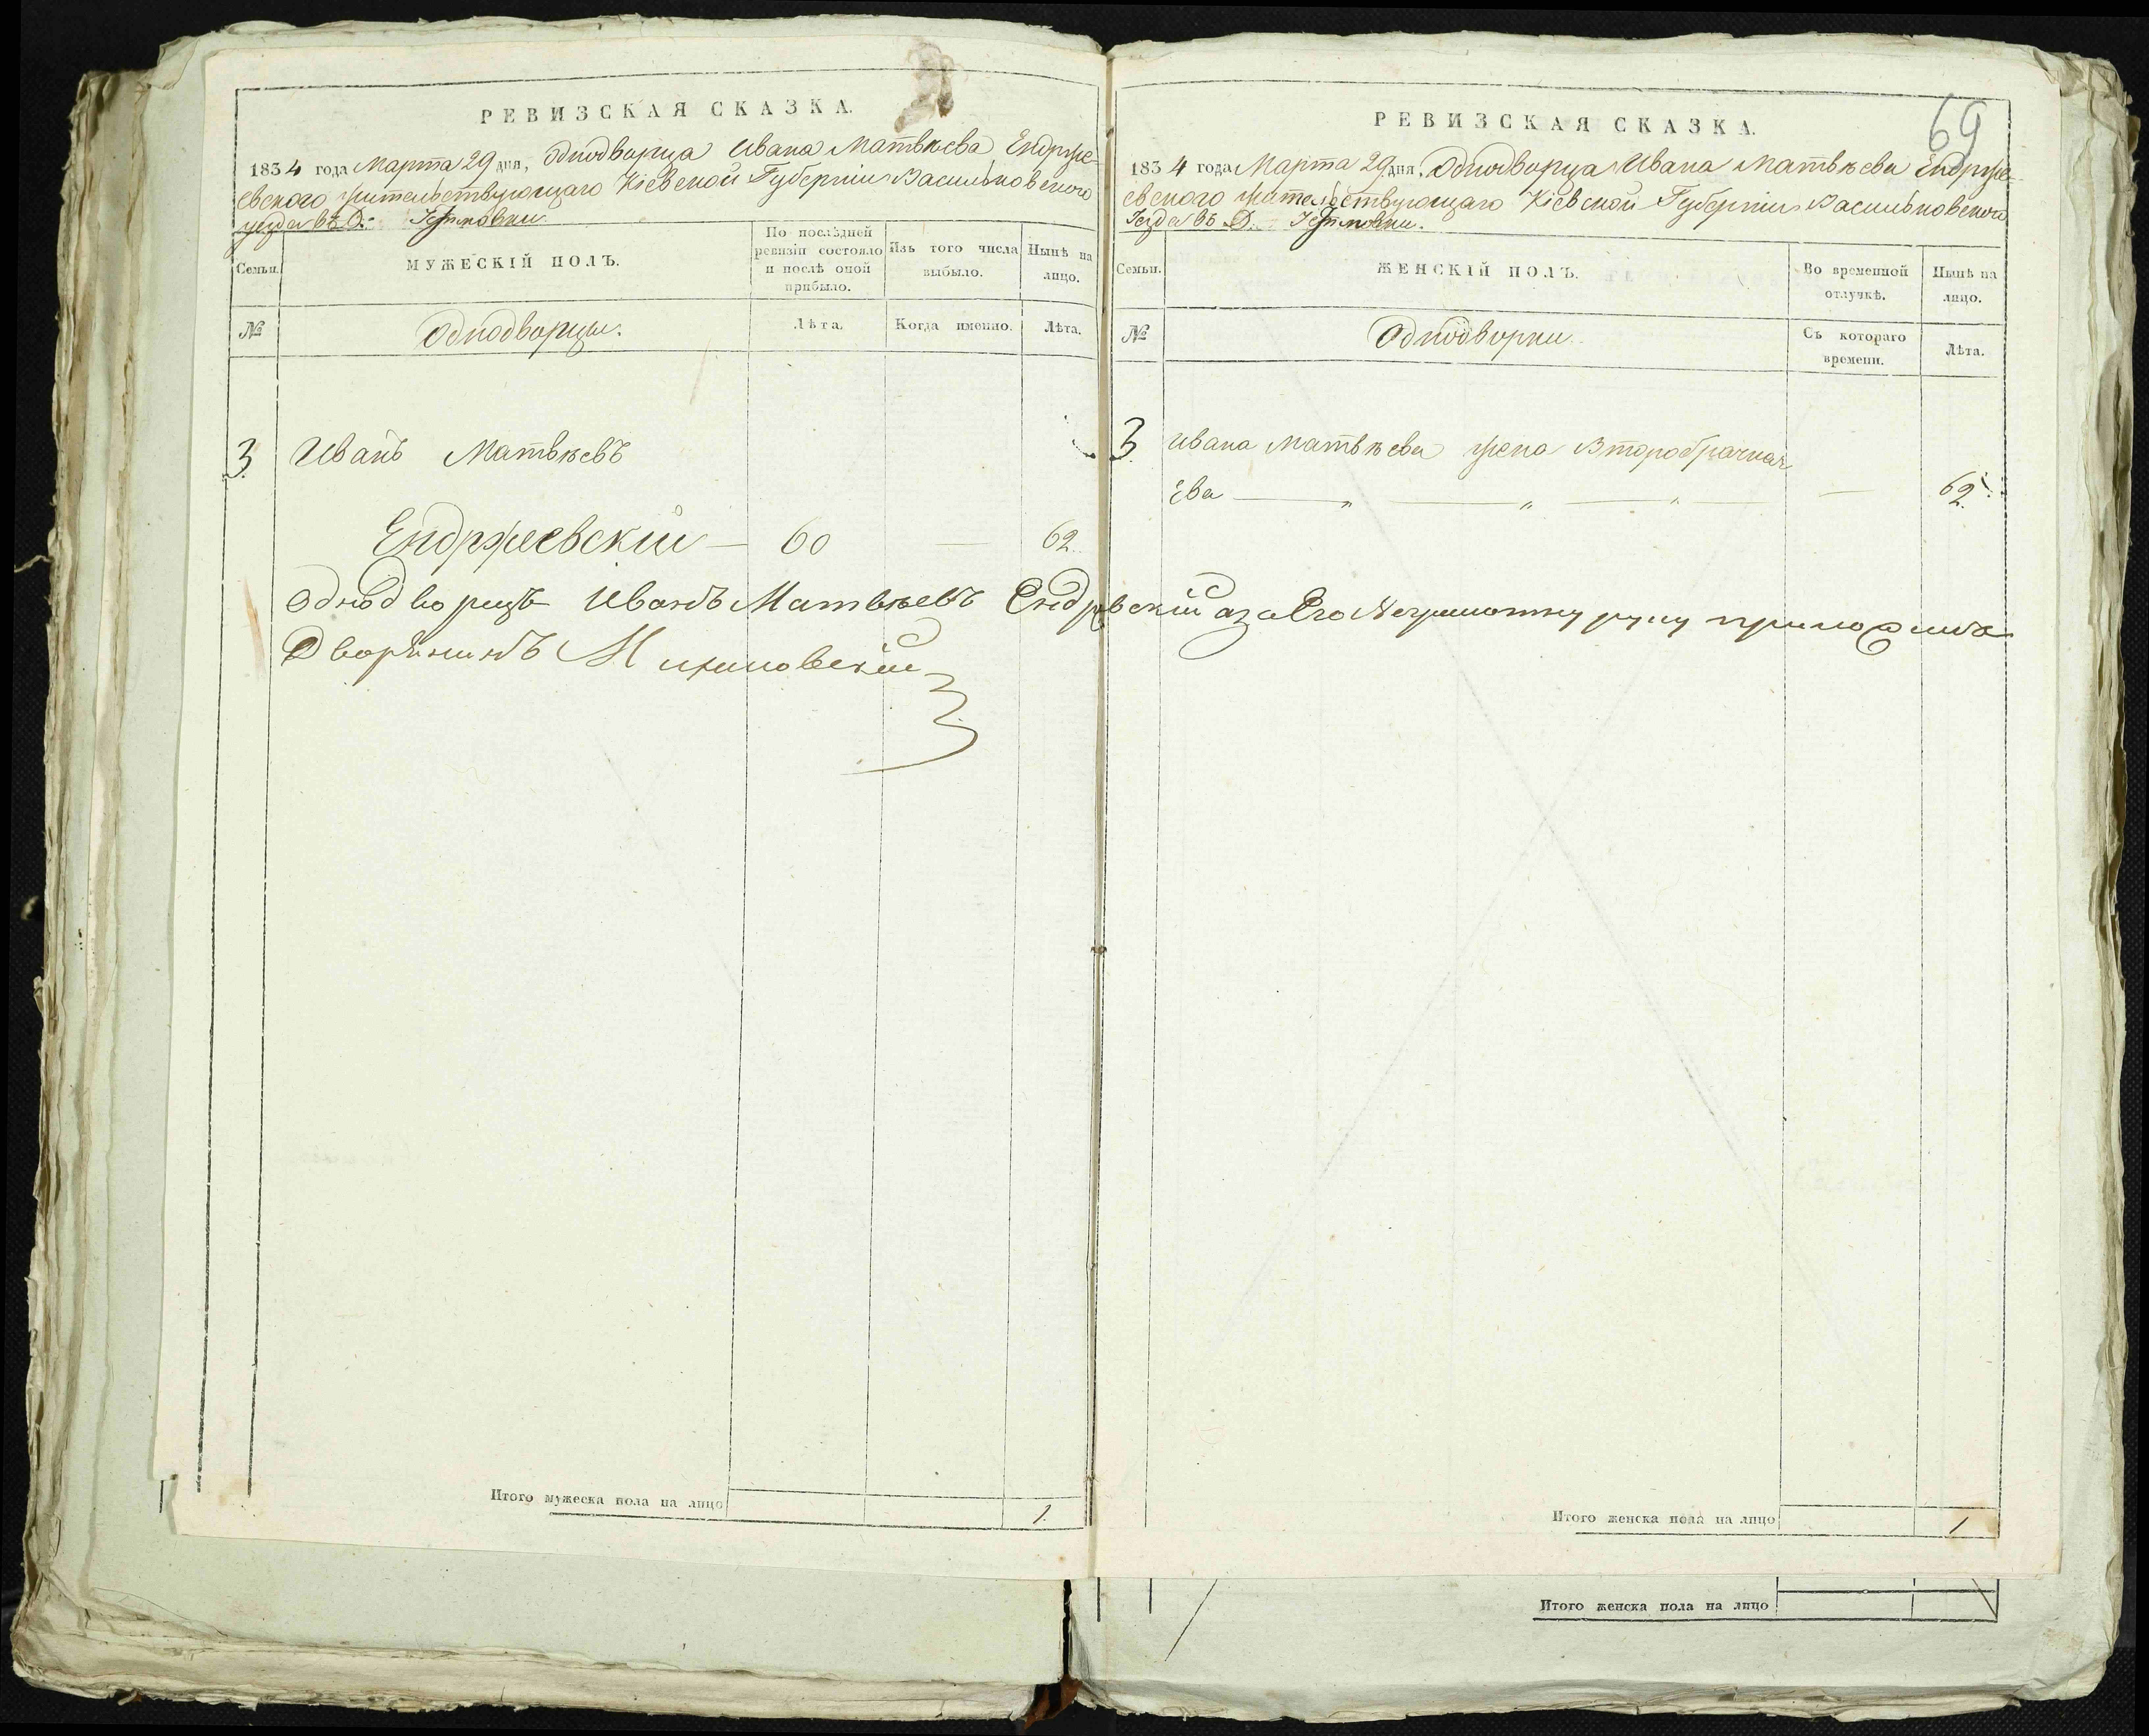 РЕВИЗСКАЯ СКАЗКА.
1834 года Марта 29 дня, Однодворца Ивана Матвѣева Ендрже-
евского жительствующаго Кіевской Губерніи Васильковского
уезда въ Д.
Семьи.
МУЖЕСКІЙ ПОЛЪ.
По послѣдней ревизіи состояло и послѣ оной прибыло.
Изъ того числа выбыло.
Нынѣ на лицо.
№
Однодворцы.
Лѣта.
Когда именно.
Лѣта.
3. Иванъ Матвѣевъ
Ендржеевскій — 60 — 62.
Однодворецъ Иванъ Матвѣевъ Ендр
Дворянинъ
Итого мужеска пола на лицо 1.
69
РЕВИЗСКАЯ СКАЗКА.
1834 года Марта 29 дня, Однодворца Ивана Матвѣева Ендрже-
евского жительствующаго Кіевской Губерніи Васильковского
Уезда въ Д.
Семьи.
ЖЕНСКІЙ ПОЛЪ.
Во временной отлучкѣ.
Нынѣ на лицо.
№
Однодворки.
Съ котораго времени.
Лѣта.
3. Ивана Матвѣева жена Второбрачная
Ева — „ — „ — „ — — 62.
вскій а за Его Неграмотну руку приложилъ
Итого женска пола на лицо 1
Итого женска пола на лицо